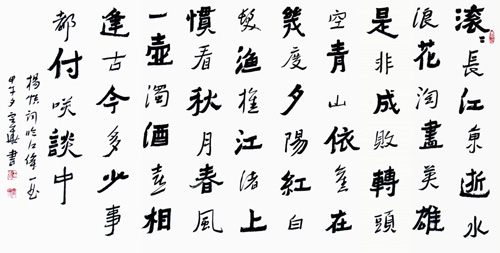 滚〻長江東逝水
浪花淘盡英雄
是非成敗轉頭
空青山依舊在
幾度夕陽紅白
髮漁樵江渚上
慣看秋月春風
一壺濁酒喜相
逢古今多少事
都付咲談中
楊慎詞臨江僊一首
甲午夕書